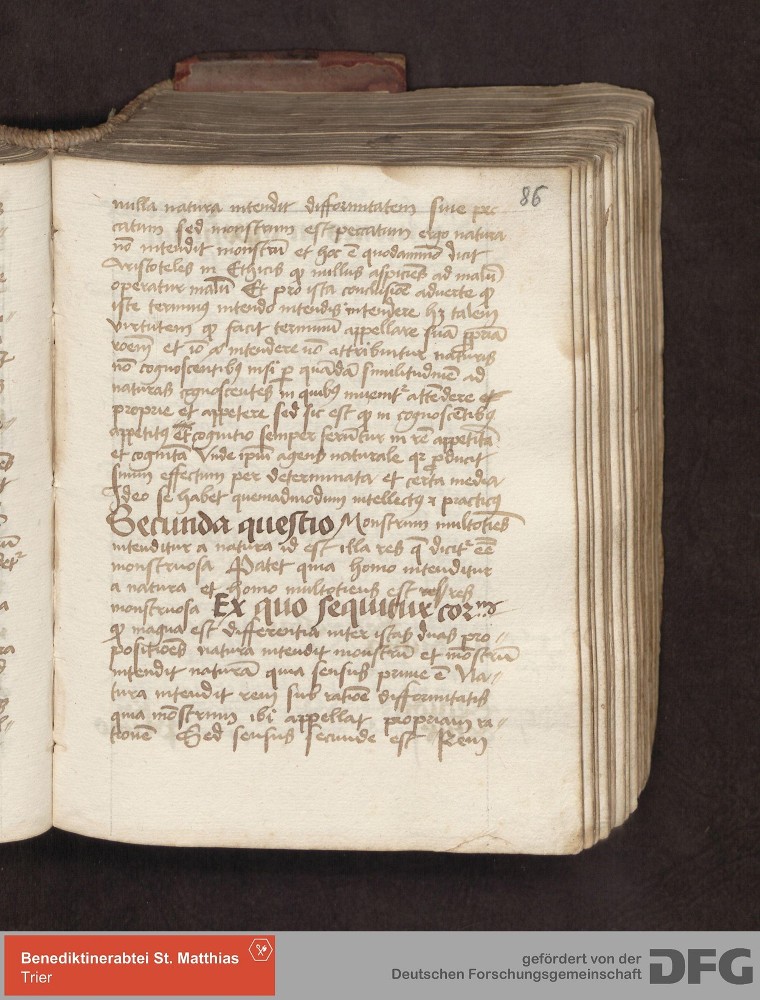 86
nulla natura intendit difformitatem siue pec-
catum sed monstrum est peccatum ergo natura
nō intendit monstrū et hoc ē quodāmō dicit
Aristoteles in Ethicis qꝫ nullus aspiciēs ad malū
operatur malū Et pro ista conclusiōe aduerte qꝫ
iste terminus intendo intendis intendere hꝫ talem
virtutem qꝫ facit terminū appellare suā ꝓpriā
rōem et iō intendere nō attribuitur naturis
nō cognoscentibꝯ nisi ꝑ quādā similitudinē ad
naturas cognoscentes in quibꝯ inuenitᷣ attēdere et
proprie et appetere sed sic est qꝫ in cognoscētibꝯ
appetitꝯ et cognitio semper ferūtur in rē appetitā
et cognitā Vnde ipm̄ agens naturale qꝛ ꝓducit
suum effectum per determinata et certa media
Ideo se habet quemadmodum intellectꝯ practicꝯ
Secunda questio Monstrum multotiēs
intenditur a natura id est illa res q̄ dicitᷣ eē̄
monstruosa Patet quia homo intenditur
a natura et homo multotiens est res
monstruosa Ex quo sequitur cor^m
qꝫ magna est differentia inter istas duas pro-
positiōes natura intendit monstrū et mōstrū
intendit naturā quia sensus prime ē Na-
tura intendit rem sub ratiōe difformitatis
quia mōstrum ibi appellat propriam ra-
tionē Sed sensus secunde est Rem
Benediktinerabtei St. Matthias
Trier
gefördert von der
Deutschen Forschungsgemeinschaft
DFG